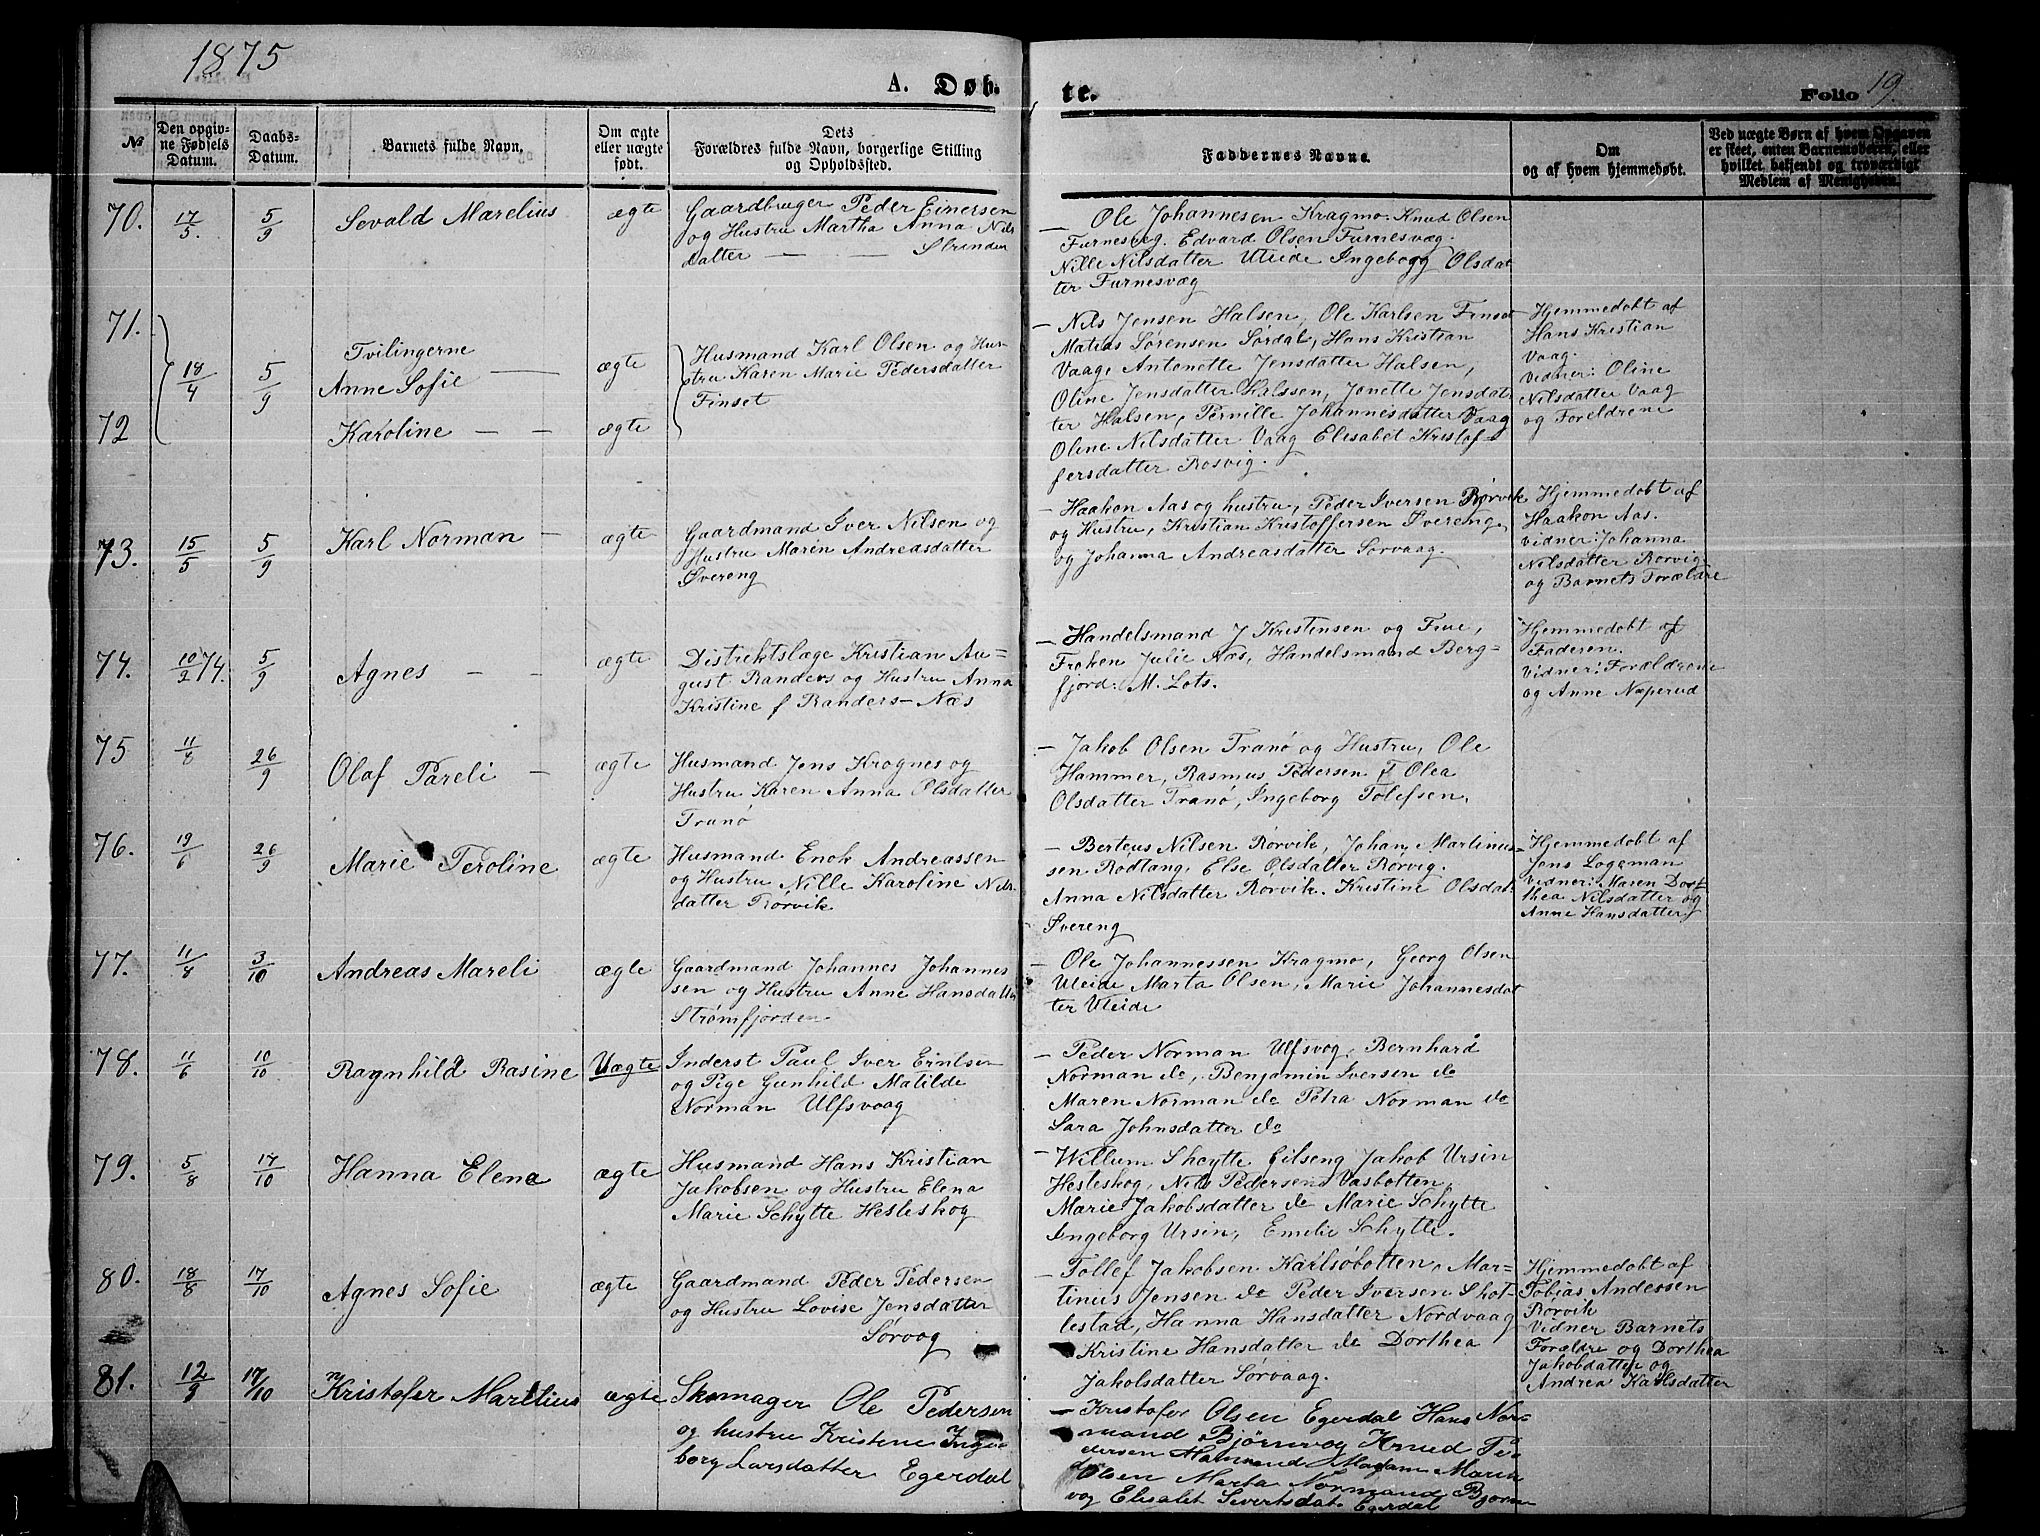 1875
A. Døb-
te.
Folio 19.
№
Den opgiv-
ne Fødsels
Datum.
Daabs-
Datum.
Barnets fulde Navn.
Om ægte
eller uægte
født.
Dets
Forældres fulde Navn, borgerlige Stilling
og Opholdssted.
Faddernes Navne.
Om
og af hvem hjemmedøbt.
Ved uægte Børn af hvem Opgaven
er skeet, enten Barnemoderen, eller
hvilket bekjendt og troværdigt
Medlem af Menigheden.
70. 17/5. 5/9 Sevald Marelius ægte
Gaardbruger Peder Einersen
og Hustru Martha Anna Nils
datter — — Strinden
— Ole Johannesen Kragmo. Knud Olsen
Furnesveg. Edvard Olsen Furnesvæg.
Nille Nilsdatter Uleide Ingebogg Olsdat
ter Furnesvæg
71.
72
18/4 5/9
Tvilingerne
Anne Sofie — ægte
Karoline — — ægte
Husmand Karl Olsen og Hus-
tru Karen Marie Pedersdatter
Finset
— Nils Jensen Halsen, Ole Karlsen Finset
Matias Sørensen Sørdal, Hans Kristian
Vaage Antonette Jensdatter Halsen,
Oline Jensdatter Halssen, Jonette Jensdat
ter Halsen, Pernille Johannesdatter Vaag
Oline Nilsdatter Vaag Elisabet Kristof-
fersdatter Rosvig.
— Hjemmedobt af
Hans Kristian
Vaag.
Vidner: Oline
Nilsdatter Vaag
og Foreldrene
73. 15/5 5/9 Karl Norman — ægte
Gaardmand Iver Nilsen og
Hustru Maren Andreasdatter
Svereng
— Haakon Aas og hustru, Peder Iversen Rørvik
og Hustru, Kristian Kristoffersen Svereng,
og Johanna Andreasdatter Sørvaag.
Hjemmedobt af
Haakon Aas.
Vidner: Johanna
Nilsdatter Rorvig
og Barnets Forældre
74. 10/2 74. 5/9 Agnes — — ægte
Distriktslæge Kristian Au=
gust Randers og Hustru Anna
Kristine f Randers — Næs
— Handelsmand J Kristensen og Frue,
Frøken Julie Næs, Handelsmand Berg-
fjord. M. Lots.
Hjemmedobt af
Faderen.
Vidner: Forældrene
og Anne Næperud
75 11/8 26/9 Olaf Pareli — ægte
Husmand Jens Krognes og
Hustru Karen Anna Olsdatter
Tranø
— Jakob Olsen Tranø og Hustru, Ole
Hammer, Rasmus Pedersen T Olea
Olsdatter Tranø, Ingeborg Tolefsen.
76. 19/6 26/9 Marie Peroline ægte
Husmand Enok Andreassen
og Hustru Nille Karoline Nils
datter Rorvik
— Berteus Nilsen Rørvik, Johan Martinus
sen Rødtang. Else Olsdatter Rorvig.
Anna Nilsdatter Rørvik. Kristine Olsdat.
Svereng
— Hjemmedobt af
Jens Logeman
Vidner: Maren Dort
thea Nilsdatter og
Anne Hansdatter
77. 11/8 3/10 Andreas Mareli ægte
Gaardmand Johannes Johannes
sen og Hustru Anne Hansdatter
Strømfjorden
— Ole Johannessen Kragmo, Georg Olsen
Uleide Marta Olsen, Marie Johannesdat
ter Uleide
78. 11/6 10/10 Ragnhild Rasine Uægte
Inderst Paul Iver Erntsen
og Pige Gunhild Matilde
Norman Ulfsvaag
— Peder Norman Ulfsvog, Bernhard
Norman do, Benjamin Iversen do
Maren Norman do Petra Norman do
Sara Johnsdatter do
79. 5/8 17/10 Hanna Elena ægte
Husmand Hans Kristian
Jakobsen og Hustru Elena
Marie Schytte Hesleskog
— Willum Sheytte Eilseng Jakob Ursin
Hesleskog, Nils Pedersen Vasbotten,
Marie Jakobsdatter do Marie Schytte
Ingeborg Ursin, Emilie Schytte.
80. 18/8 17/10 Agnes Sofie ægte
Gaardmand Peder Pedersen
og Hustru Lovise Jensdatter
Sørvag
— Tollef Jakobsen Karlsøbotten, Mar-
tinus Jensen do Peder Iversen Shot-
lestad, Hanna Hansdatter Nordvaag
Kristine Hansdatter do Dorthea
Jakolsdatter Sørvaag.
Hjemmedobt af
Tobias Anderssen
Rorvik
Vidner Barnets
Forældre og Dorthea
Jakobdatter og
Andrea Karlsdatter
81. 12/9 17/10 Kristofer Marelius ægte
Skomager Ole Pedersen
og hustru Kristene Inge-
borg Larsdatter Egerdal
— Kristofer Olsen Egerdal Hans Nor-
mand Bjørnvog Knud Pe
dersen Madam Maren
Olsen Marta Normand Bjørn
vog Elisabet Sivertsdat. Egerdal